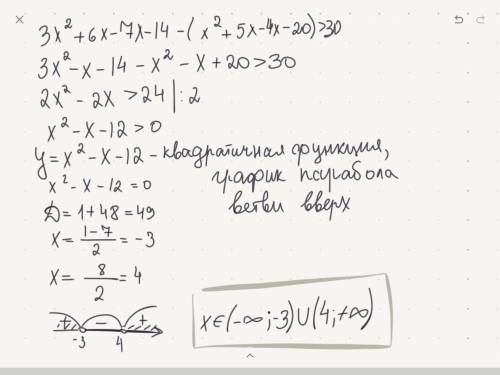 3x²+6x-7x-14-(x²+5x-4x-20)>30
3x²-x-14-x²-x+20>30
2x²-2x>24|:2
x²-x-12>0
y=x²-x-12 - квадратичная функция,
график парабола
ветви вверх
x²-x-12=0
D=1+48=49
x=(1-7)/2=-3
x=8/2=4
+ - +
-3 4
x∈(-∞;-3)∪(4;+∞)